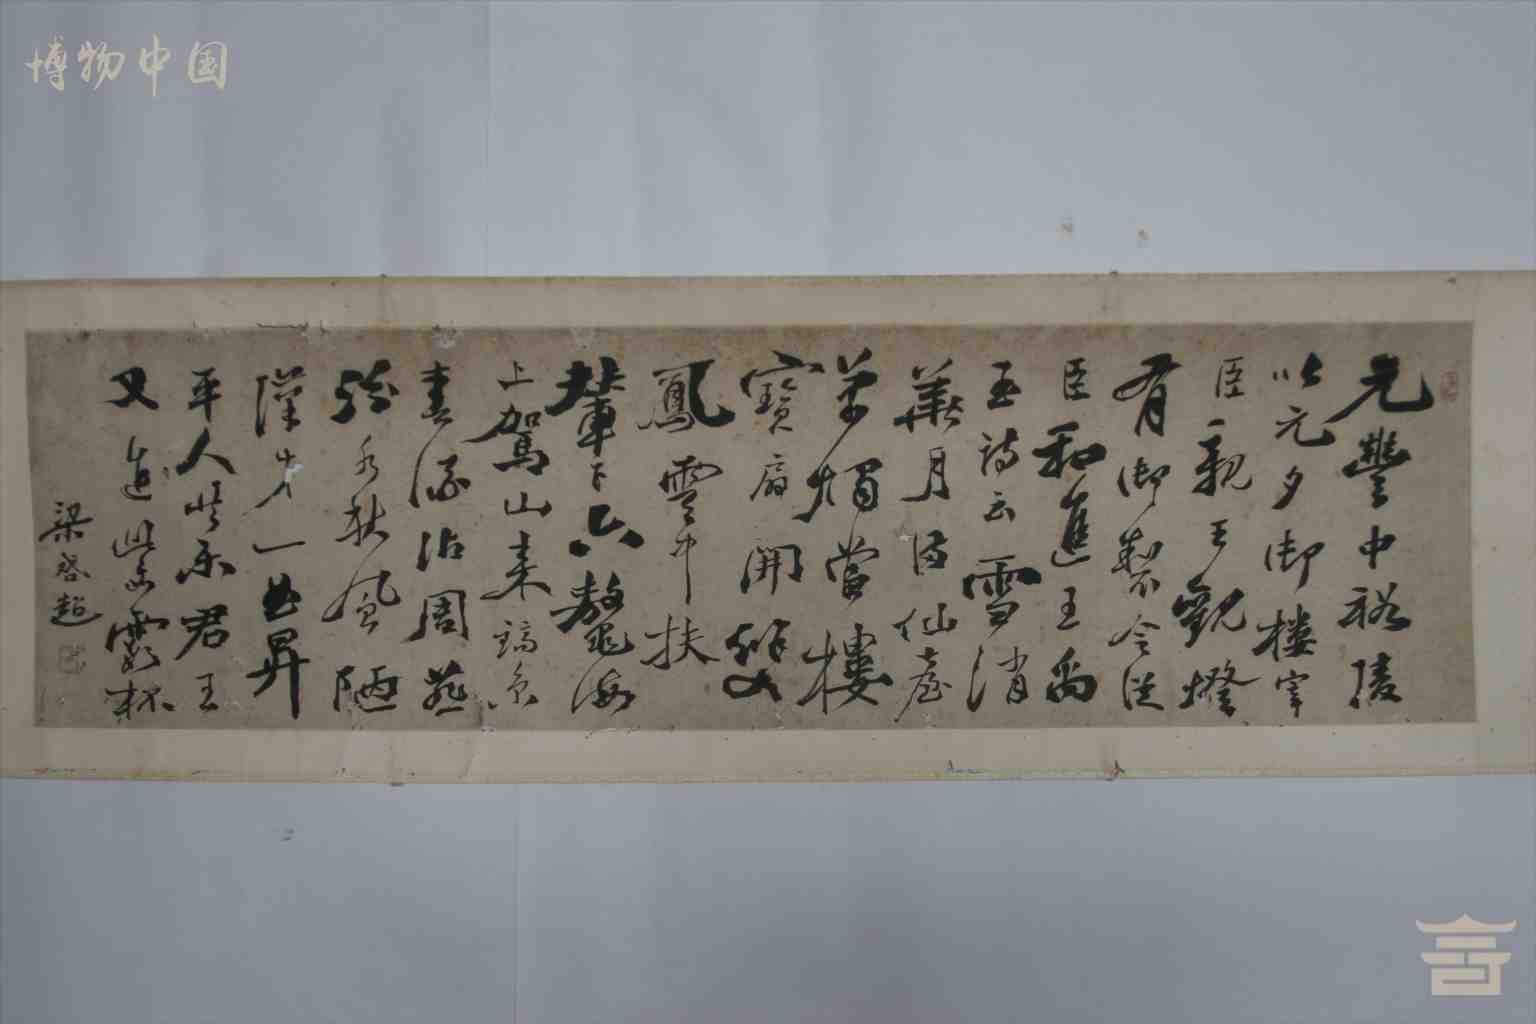 博物中国
元豐中裕陵
以元夕御樓宰
臣親王觀燈
有御製令從
臣和進王禹
玉詩云雪消
華月滿仙臺
萬燭當樓
寶扇開雙
鳳雲中扶
輦下六鰲海
上駕山來鎬京
春酒沾周燕
汾水秋風陋
漢才一曲昇
平人共樂君王
又進紫霞杯
梁啓超